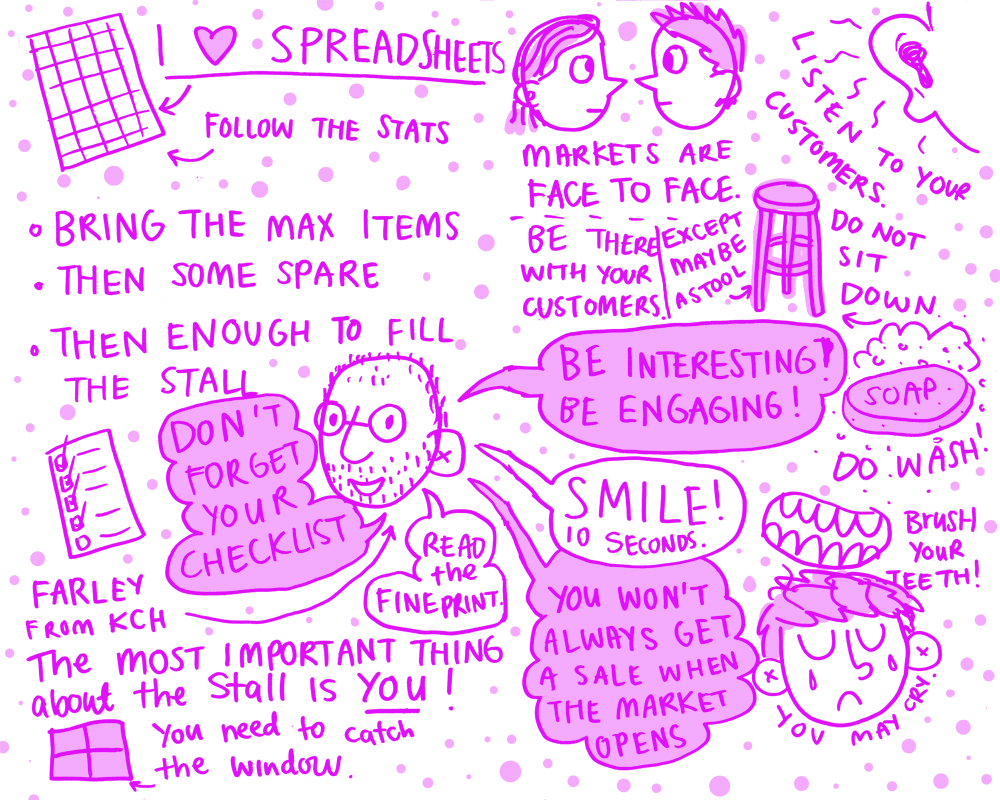 I ♥ SPREADSHEETS
FOLLOW THE STATS
• BRING THE MAX ITEMS
• THEN SOME SPARE
• THEN ENOUGH TO FILL
THE STALL
DON'T
FORGET
YOUR
CHECKLIST
FARLEY
FROM KCH
READ
the
FINEPRINT.
The MOST IMPORTANT THING
about the Stall is YOU!
You need to catch
the window.
MARKETS ARE
FACE TO FACE.
BE THERE
WITH YOUR
CUSTOMERS.
EXCEPT
MAYBE
A STOOL
LISTEN TO YOUR
CUSTOMERS.
DO NOT
SIT
DOWN.
BE INTERESTING!
BE ENGAGING!
SOAP.
DO WASH!
SMILE!
10 SECONDS.
BRUSH
YOUR
TEETH!
YOU WON'T
ALWAYS GET
A SALE WHEN
THE MARKET
OPENS
YOU MAY CRY.